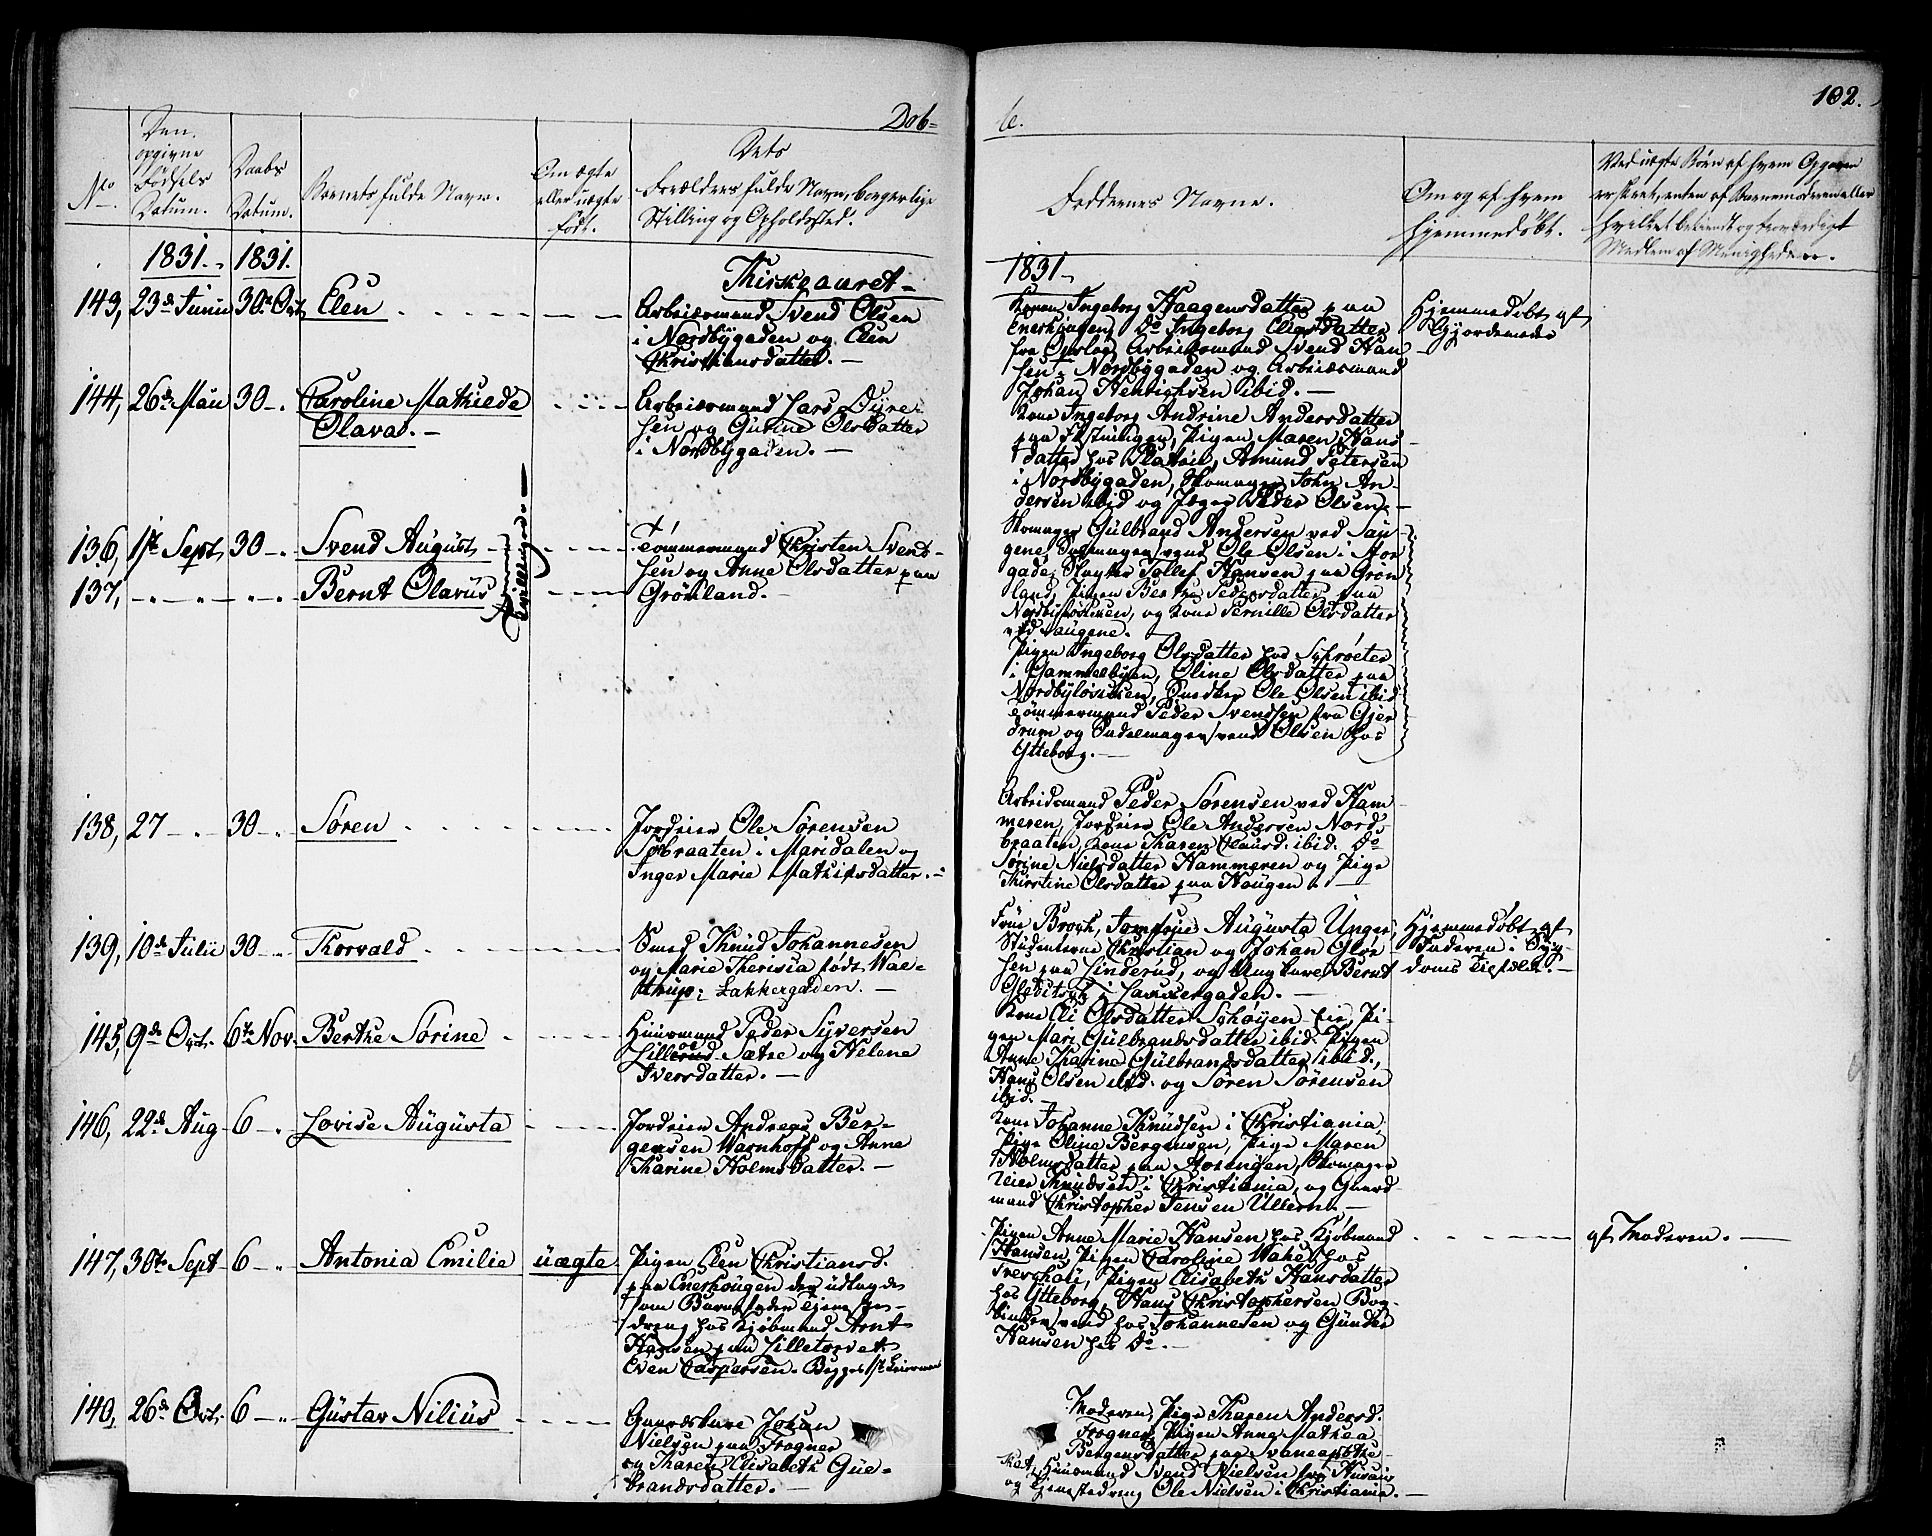 102.
Døb=
te.
No
Den
opgivne
Fødsels
Datum.
Daabs
Datum.
Barnets fulde Navn.
Om ægte
eller uægte
født.
Dets
Forældres fulde Navn, borgerlige
Stilling og Opholdssted.
Faddernes Navne.
Om og af hvem
hjemmedøbt.
Ved uægte Børn af hvem Opgaven
er skeet, enten af Barnemoderen eller
hvilket bekiendt og troværdigt
Medlem af Menigheden.
1831. 1831.
Kirkeaaret
1831
143, 23de Junii 30te Oct. Elen
Arbeidsmand Svend Olsen
i Nordbygaden og Elen
Christiansdatter.
Konen Ingeborg Haagensdatter paa
Enerhaugen, Do Ingeborg Eliasdatter
fra Opslo, Arbeidsmand Svend Han
sen, Nordbygaden og Arbeidsmand
Johan Henrichsen ibid.
Hjemmedøbt af
Gjordemoder
144, 26de Maii 30 Caroline Mathilde
Olava.
Arbeidsmand Lars Dyre
sen og Gurine Olsdatter
i Nordbygaden.
Kone Ingeborg Andrine Andersdatter
paa Fæstningen, Pigen Maren Hans
datter hos Platou, Amund Petersen
i Nordbygaden, Skomager John An
dersen ibid og Jæger Peder Olsen.
136, 1ste Sept. 30 Svend August
137, Bernt Olavus
Tvillinge
Tømmermand Christen Svend
sen og Anne Olsdatter paa
Grønland.
Skomager Gulbrand Andersen ved Sau
gene, Ole Olsen i
gade, Tollef Hansen paa Grøn
land, Pigen Berthe Pedersdatter paa
og Kone Pernille Olsdatter
ved Saugene.
Pigen Ingeborg Olsdatter hos Schrøeter
i Gammelbyen, Oline Olsdatter paa
Nordbyløkken, Snedker Ole Olsen ibid
Tømmermand Peder Svendsen fra Gjer
drum og Sadelmagersvend Olsen hos
Ytteborg.
138, 27 30 Søren
Jordeier Ole Sørensen
Sørbraaten i Maridalen og
Inger Marie Mathisdatter.
Arbeidsmand Peder Sørensen ved Ham
meren, Jordeier Ole Andersen Nord
braaten, Kone Karen Clausd. ibid. Do
Sørine Nielsdatter Hammeren og Pige
Kirstine Olsdatter paa Haugen.
139, 10de Julii 30 Thorvald
Smed Knud Johannesen
og Marie Theresia født Wal=
strup, Lakkergaden.
Frue Broch, Jomfrue Augusta Unger,
Studenterne Christian og Johan Glør
sen paa Linderud, og Ungkarl Bernt
Gleditsch i Lakkergaden.
Hjemmedøbt af
Faderen i Syg
doms Tilfælde.
145, 9de Oct. 6te Nov. Berthe Sørine
Huusmand Peder Syversen
Sætre og Helene
Iversdatter.
Kone Eli Olsdatter Schøyen Eie, Pi
gen Mari Gulbrandsdatter ibid. Pigen
Anne Karine Gulbrandsdatter ibid.,
Hans Olsen ibid. og Søren Sørensen
ibid.
146, 22de Aug 6 Lovise Augusta
Jordeier Andreas Ber=
gensen Warnhoff og Anne
Karine Holmsdatter.
Kone Johanne Knudsen i Christiania,
Pige Oline Bergensen, Pige Maren
Holmsdatter paa Sorengen, Skomager
Knudsen i Christiania, og Gaard
mand Christopher Jensen Ullern.
147, 30te Sept 6 Antonia Emilie uægte
Pigen Elen Christiansd.
paa Enerhaugen der udlagde
som Barnefader Tjeneste=
dreng hos Kjøbmand Arnt
Hansen paa Lilletorvet
Even Caspersen. Begges 1ste Leiermaal
Pigen Anne Marie Hansen hos Kjøbmand
Hansen, Pigen Caroline Wake hos
Treschau, Pigen Elisabeth Hansdatter
hos Ytteborg, Hans Christophersen Bog
bindersvend hos Johannesen og Gunder
Hansen hos Do.
af Moderen.
140, 26de Oct. 6 Gustav Nilius
Gaardskarl Johan
Nielsen paa Frogner
og Karen Elisabeth Gul=
brandsdatter.
Moderen, Pige Karen Andersd.
Frogner, Pigen Anne Mathea
Bergensdatter paa Svaneapothe
ket, Huusmand Svend Nielsen fra
og Tjenestedreng Ole Nielsen i Christiania.